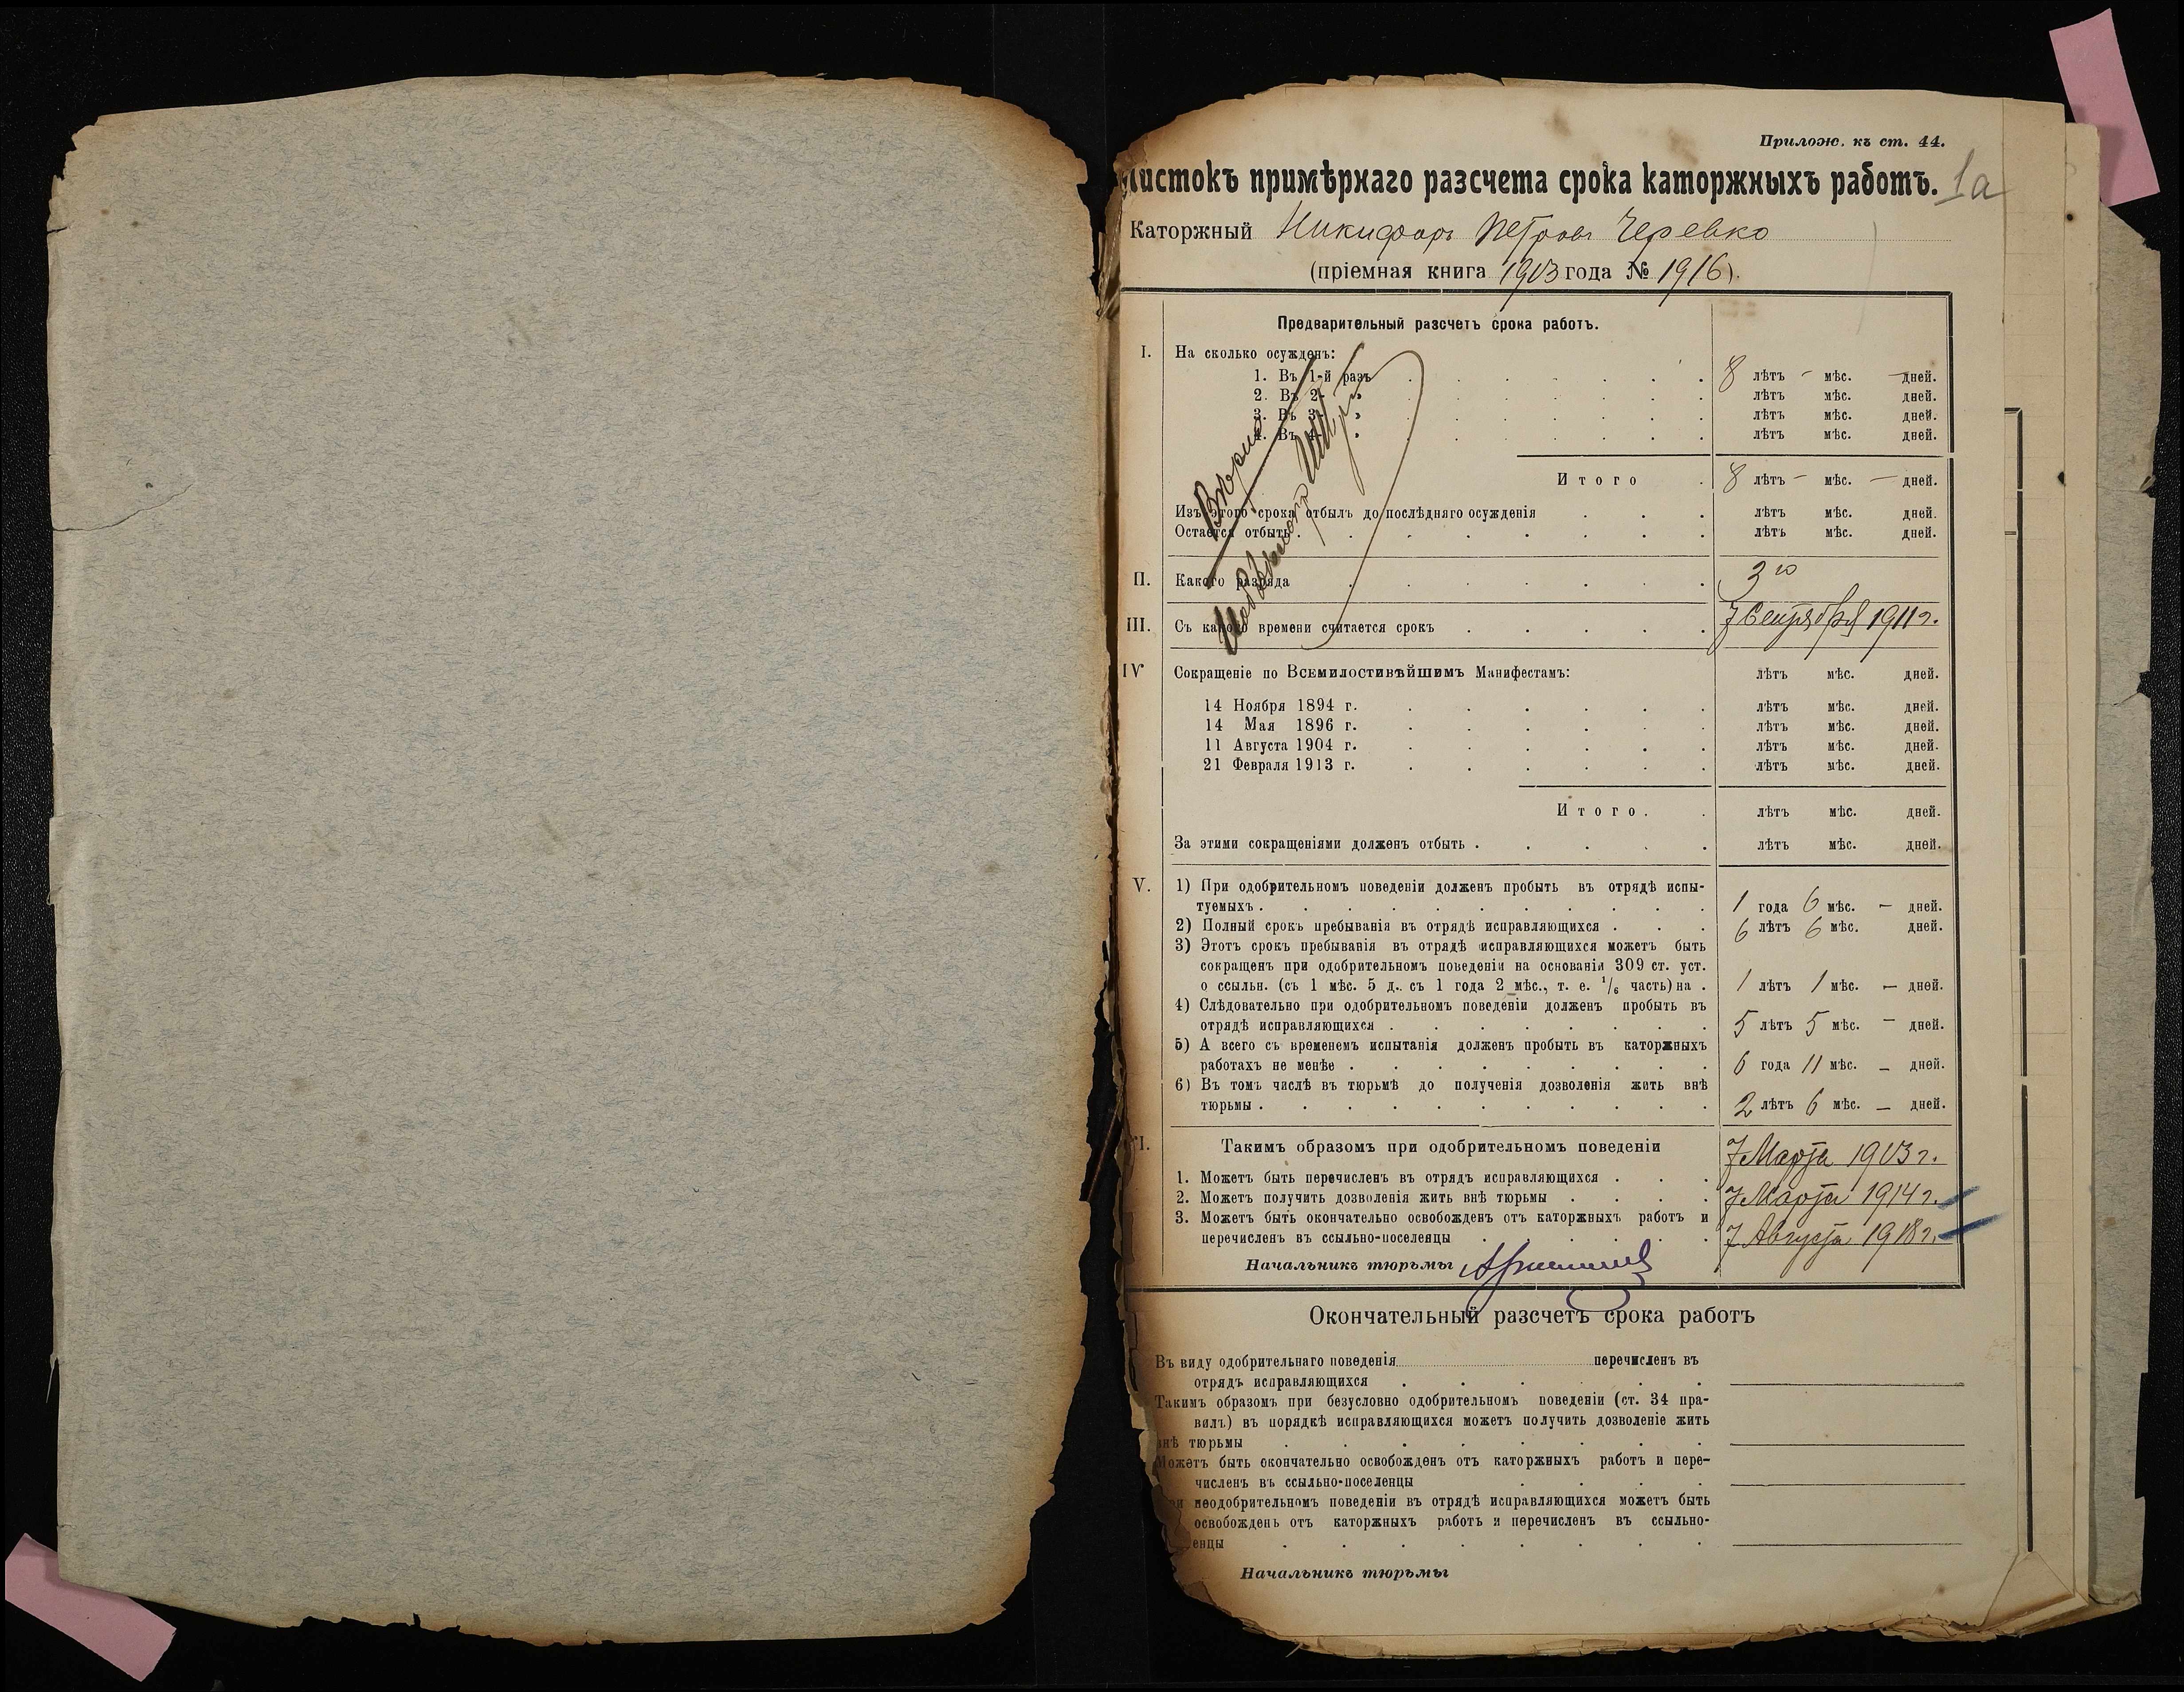 Прилож. къ ст. 44.
Листокъ примѣрнаго разсчета срока каторжныхъ работъ. 1а
Каторжный Никифоръ Петровъ Черевко
(пріемная книга 1913 года № 1916).
Предварительный разсчетъ срока работъ.
I. На сколько осужденъ:
1. Въ 1-й разъ 8 лѣтъ - мѣс. - дней.
2. Въ 2- » лѣтъ мѣс. дней.
3. Въ 3- » лѣтъ мѣс. дней.
4. Въ 4- » лѣтъ мѣс. дней.
Итого 8 лѣтъ - мѣс. - дней.
Изъ этого срока отбылъ до послѣдняго осужденія лѣтъ мѣс. дней.
Остается отбыть лѣтъ мѣс. дней.
Вѣрно:
II. Какого разряда 3го
III. Съ какого времени считается срокъ 7 Сентября 1911 г.
IV Сокращеніе по Всемилостивѣйшимъ Манифестамъ: лѣтъ мѣс. дней.
14 Ноября 1894 г. лѣтъ мѣс. дней.
14 Мая 1896 г. лѣтъ мѣс. дней.
11 Августа 1904 г. лѣтъ мѣс. дней.
21 Февраля 1913 г. лѣтъ мѣс. дней.
Итого. лѣтъ мѣс. дней.
За этими сокращеніями долженъ отбыть . лѣтъ мѣс. дней.
V. 1) При одобрительномъ поведеніи долженъ пробыть въ отрядѣ испы-
туемыхъ . 1 года 6 мѣс. - дней.
2) Полный срокъ пребыванія въ отрядѣ исправляющихся . 6 лѣтъ 6 мѣс. дней.
3) Этотъ срокъ пребыванія въ отрядѣ исправляющихся можетъ быть
сокращенъ при одобрительномъ поведеніи на основаніи 309 ст. уст.
о ссыльн. (съ 1 мѣс. 5 д. съ 1 года 2 мѣс., т. е. 1/6 часть) на . 1 лѣтъ 1 мѣс. - дней.
4) Слѣдовательно при одобрительномъ поведеніи долженъ пробыть въ
отрядѣ исправляющихся . 5 лѣтъ 5 мѣс. - дней.
5) А всего съ временемъ испытанія долженъ пробыть въ каторжныхъ
работахъ не менѣе . 6 года 11 мѣс. - дней.
6) Въ томъ числѣ въ тюрьмѣ до полученія дозволенія жить внѣ
тюрьмы . 2 лѣтъ 6 мѣс. - дней.
VI. Такимъ образомъ при одобрительномъ поведеніи
1. Можетъ быть перечисленъ въ отрядъ исправляющихся . 7 Марта 1913 г.
2. Можетъ получить дозволенія жить внѣ тюрьмы . 7 Марта 1914 г.
3. Можетъ быть окончательно освобожденъ отъ каторжныхъ работъ и
перечисленъ въ ссыльно-поселенцы 7 Августа 1918 г.
Начальникъ тюрьмы
Окончательный разсчетъ срока работъ
Въ виду одобрительнаго поведенія перечисленъ въ
отрядъ исправляющихся
Такимъ образомъ при безусловно одобрительномъ поведеніи (ст. 34 пра-
вилъ) въ порядкѣ исправляющихся можетъ получить дозволеніе жить
внѣ тюрьмы
Можетъ быть окончательно освобожденъ отъ каторжныхъ работъ и пере-
численъ въ ссыльно-поселенцы
ри неодобрительномъ поведеніи въ отрядѣ исправляющихся можетъ быть
освобожденъ отъ каторжныхъ работъ и перечисленъ въ ссыльно-
енцы
Начальникъ тюрьмы